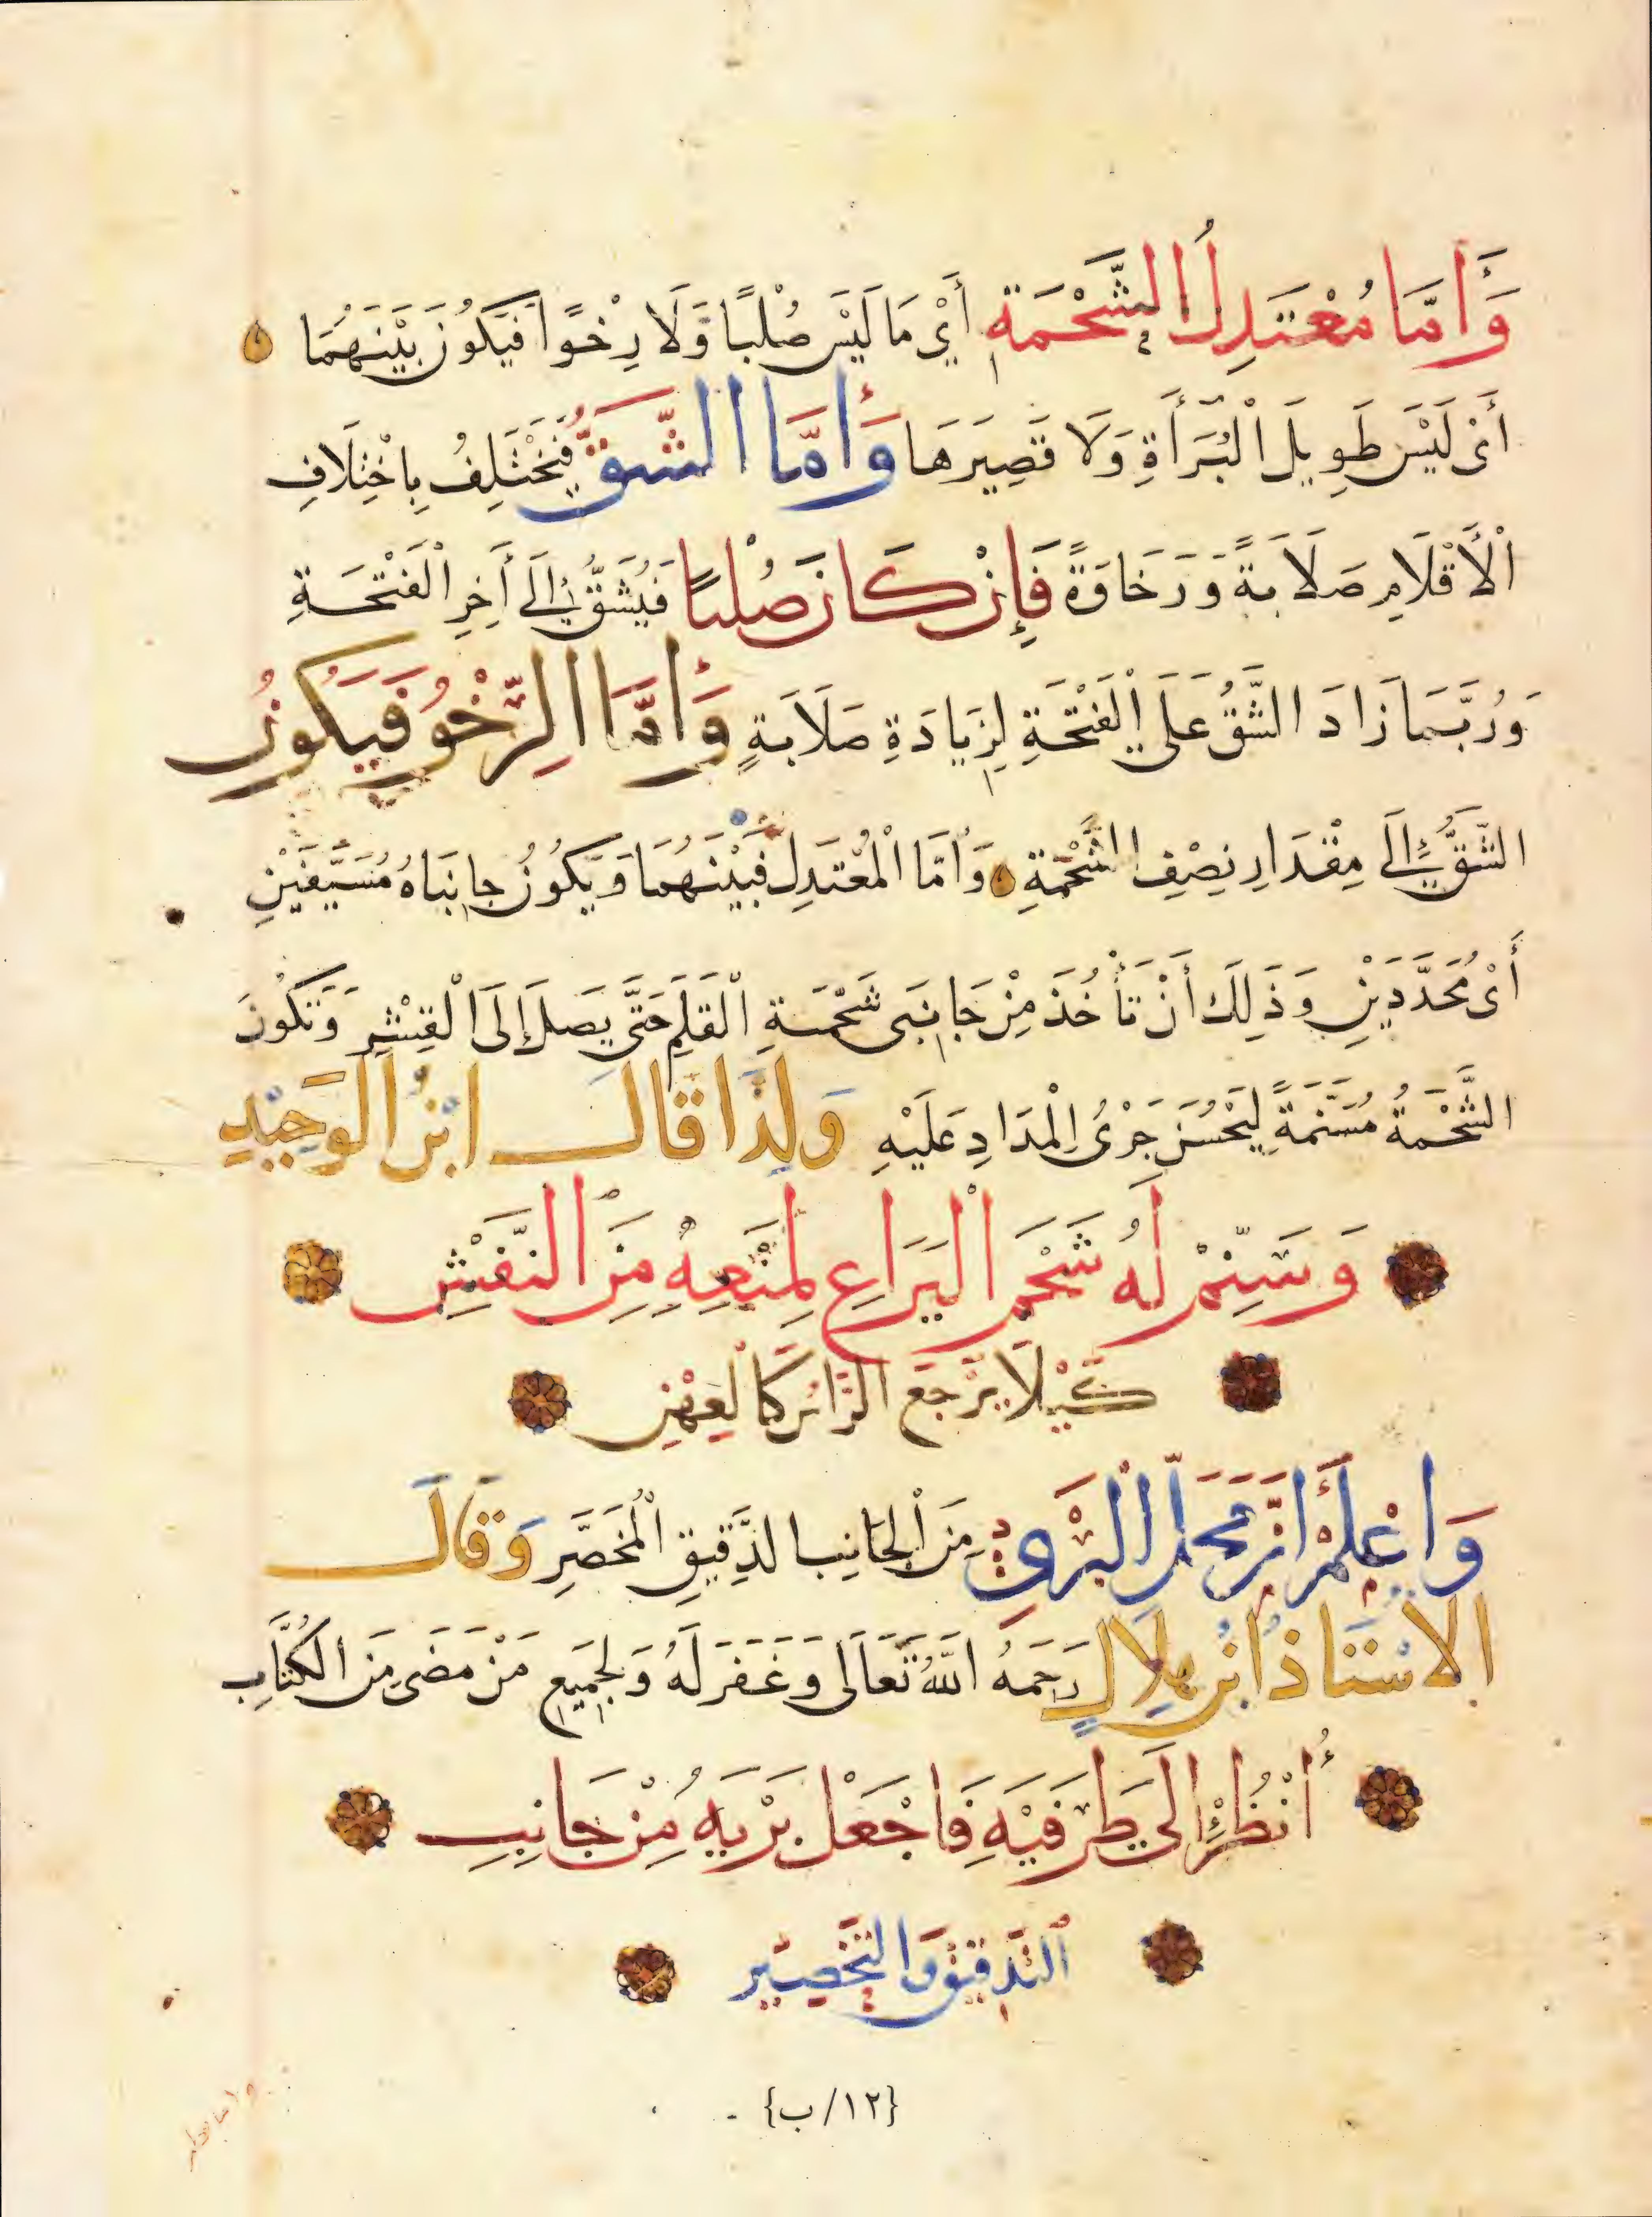 وَأَمَّا مُعْتَدِلُ الشَّحْمَةِ أَيْ مَا لَيْسَ صُلْبًا وَلَا رِخْوًا فَيَكُونُ بَيْنَهُمَا
أَىْ لَيْسَ طَوِيلَ الْبُرَأَةِ وَلَا قَصِيرَهَا وَأَمَّا الشَّقُّ فَيَخْتَلِفُ بِاخْتِلَافِ
الْأَقْلَامِ صَلَابَةً وَرَخَاوَةً فَإِنْ كَانَ صُلْبًا فَيُشَقُّ إِلَى أَخِرِ الْفَتْحَةِ
وَرُبَّمَا زَادَ الشَّقُّ عَلَى الْفَتْحَةِ لِزِيَادَةِ صَلَابَةٍ وَأَمَّا الرِّخْوُ فَيَكُونُ
الشَّقُّ إِلَى مِقْدَارِ نِصْفِ الشَّحْمَةِ وَأَمَّا الْمُعْتَدِلُ فَبَيْنَهُمَا وَيَكُونُ جَانِبَاهُ مُسَيَّفَيْنِ
أَىْ مُحَدَّدَيْنِ وَذَلِكَ أَنْ تَأْخُذَ مِنْ جَانِبَىْ شَحْمَةِ الْقَلَمِ حَتَّى يَصِلَ إِلَى الْقِشْرِ وَتَكُونَ
الشَّحْمَةُ مُسَنَّمَةً لِيَحْسُنَ جَرْىُ الْمِدَادِ عَلَيْهِ وَلِذَا قَالَ ابْنُ الْوَحِيدِ
وَسَنِّمْ لَهُ شَحْمَ الْيَرَاعِ لِمَنْعِهِ مِنَ النَّفْشِ
كَيْلَا يَرْجِعَ الزَّائِرُ كَالْعِهْنِ
وَاعْلَمْ أَنَّ مَحَلَّ الْبَرْىِ مِنَ الْجَانِبِ الدَّقِيقِ الْمُخَصَّرِ وَقَالَ
الْأُسْتَاذُ ابْنُ هِلَالٍ رَحِمَهُ اللَّهُ تَعَالَى وَغَفَرَ لَهُ وَلِجَمِيعِ مَنْ مَضَى مِنَ الْكُتَّابِ
أُنْظُرْ إِلَى طَرَفَيْهِ فَاجْعَلْ بَرْيَهُ مِنْ جَانِبِ
التَّدْقِيقِ وَالتَّخْصِيرِ
{١٢/ب}